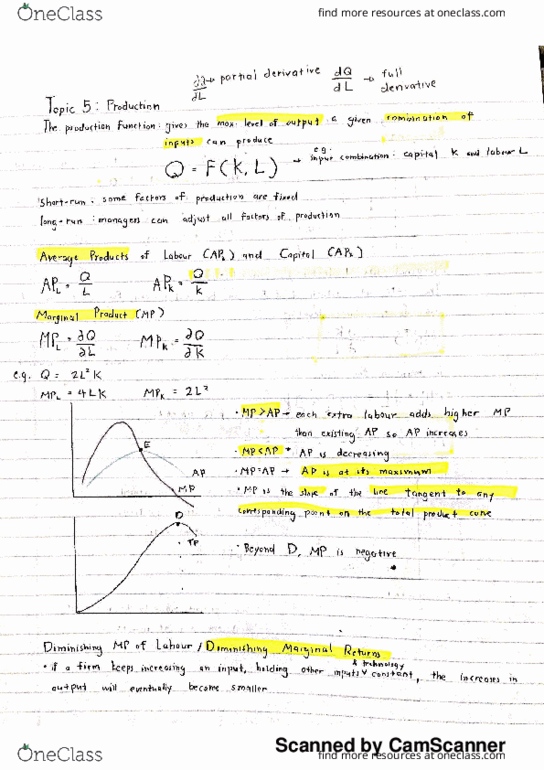 OneClass
find more resources at oneclass.com
∂Q/∂L → partial derivative dQ/dL → full derivative
Topic 5: Production
The production function: gives the max level of output a given combination of
inputs can produce
Q = F(K, L) → e.g. input combination: capital K and labour L
Short-run: some factors of production are fixed
long-run: managers can adjust all factors of production
Average Products of Labour (APL) and Capital (APK)
APL = Q/L APK = Q/K
Marginal Product (MP)
MPL = ∂Q/∂L MPK = ∂Q/∂K
e.g. Q = 2L²K
MPL = 4LK MPK = 2L²
• MP>AP → each extra labour adds higher MP
than existing AP so AP increases
• MP<AP → AP is decreasing
• MP=AP → AP is at its maximum
• MP is the slope of the line tangent to any
corrisponding point on the total product curve
• Beyond D, MP is negative
E
AP
MP
D
TP
Diminishing MP of Labour / Diminishing Marginal Returns
• if a firm keeps increasing an input, holding other inputs & technology constant, the increases in
output will eventually become smaller
Scanned by CamScanner
OneClass
find more resources at oneclass.com